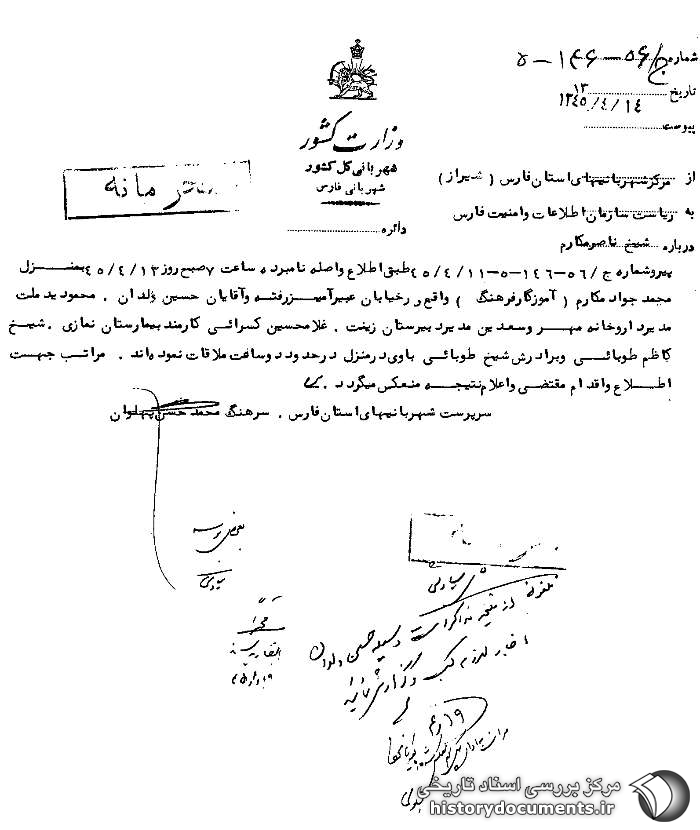 شماره ۵۶/ج-۱۴۶-۵
تاریخ ۱۳
۱۳۴۵/۴/۱۴
پیوست
وزارت کشور
شهربانی کل کشور
شهربانی فارس
دائره
محرمانه
از مرکز شهربانیهای استان فارس ( شیراز )
به ریاست سازمان اطلاعات و امنیت فارس
درباره شیخ ناصر مکارم
پیرو شماره ج/۵۶-۱۴۶-۵-۴۵/۴/۱۱ طبق اطلاع واصله نامبرده ساعت ۷ صبح روز ۴۵/۴/۱۳ بمنزل
محمد جواد مکارم ( آموزگار فرهنگ ) واقع در خیابان عبیرآمیز رفته و آقایان حسین ولدان . محمود ید ملت
مدیر داروخانه مهر و سعدین مدیر دبیرستان زینت . غلامحسین کسرائی کارمند بیمارستان نمازی . شیخ
کاظم طوبائی و برادرش شیخ طوبائی باوی در منزل در حدود دو ساعت ملاقات نموده اند . مراتب جهت
اطلاع و اقدام مقتضی و اعلام نتیجه منعکس میگردد .
سرپرست شهربانیهای استان فارس . سرهنگ محمد حسن پهلوان
بعرض برسد
از نتیجه مذاکرات وسیله حسین ولدان
اخبار لازم کسب و گزارش نمائید
مرکز بررسی اسناد تاریخی
historydocuments.ir